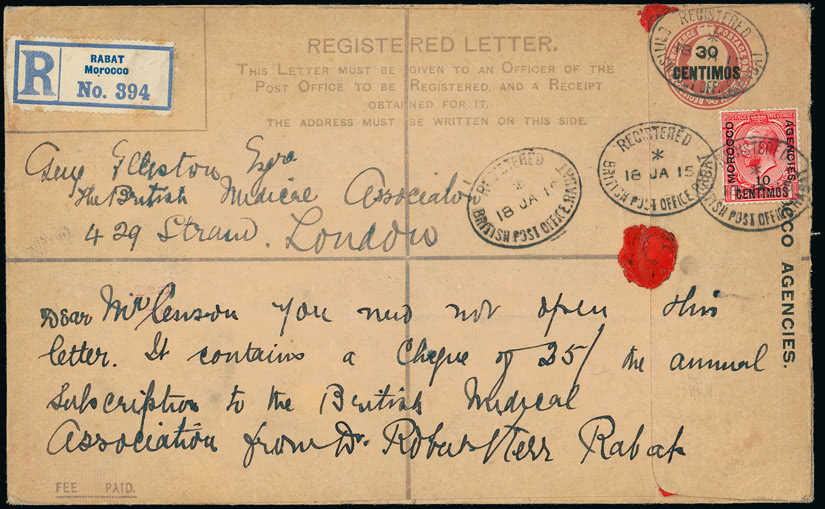 REGISTERED LETTER.
THIS LETTER MUST BE GIVEN TO AN OFFICER OF THE
POST OFFICE TO BE REGISTERED, AND A RECEIPT
OBTAINED FOR IT.
THE ADDRESS MUST BE WRITTEN ON THIS SIDE.
R
RABAT
Morocco
No. 394
REGISTERED
30
CENTIMOS
MOROCCO AGENCIES
10
CENTIMOS
REGISTERED
18 JA 15
BRITISH POST OFFICE, RABAT
REGISTERED
18 JA 15
BRITISH POST OFFICE, RABAT
REGISTERED
BRITISH POST OFFICE, RABAT
Esqre
The British Medical Association
429 Strand. London
CO AGENCIES.
Dear Mr you need not open this
letter. It contains a Cheque of 25/ the annual
subscription to the British Medical
Association from Dr. Robert Kerr Rabat
FEE PAID.